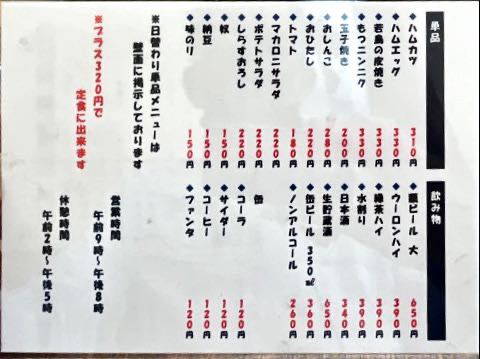 単品
◆ハムカツ 310円
◆ハムエッグ 330円
◆若鳥の皮焼き 330円
◆もつニンニク 330円
◆玉子焼き 200円
◆おしんこ 280円
◆おひたし 220円
◆トマト 180円
◆マカロニサラダ 220円
◆ポテトサラダ 220円
◆しらすおろし 220円
◆奴 150円
◆納豆 150円
◆味のり 150円
※日替わり単品メニューは
壁面に掲示しております
※プラス320円で
定食に出来ます
飲み物
◆瓶ビール 大 650円
◆ウーロンハイ 390円
◆緑茶ハイ 390円
◆水割り 390円
◆日本酒 340円
◆生貯蔵酒 650円
◆缶ビール 350㎖ 360円
◆ノンアルコール 260円
缶
◆コーラ 120円
◆サイダー 120円
◆コーヒー 120円
◆ファンタ 120円
営業時間
午前9時〜午後8時
休憩時間
午前2時〜午後5時